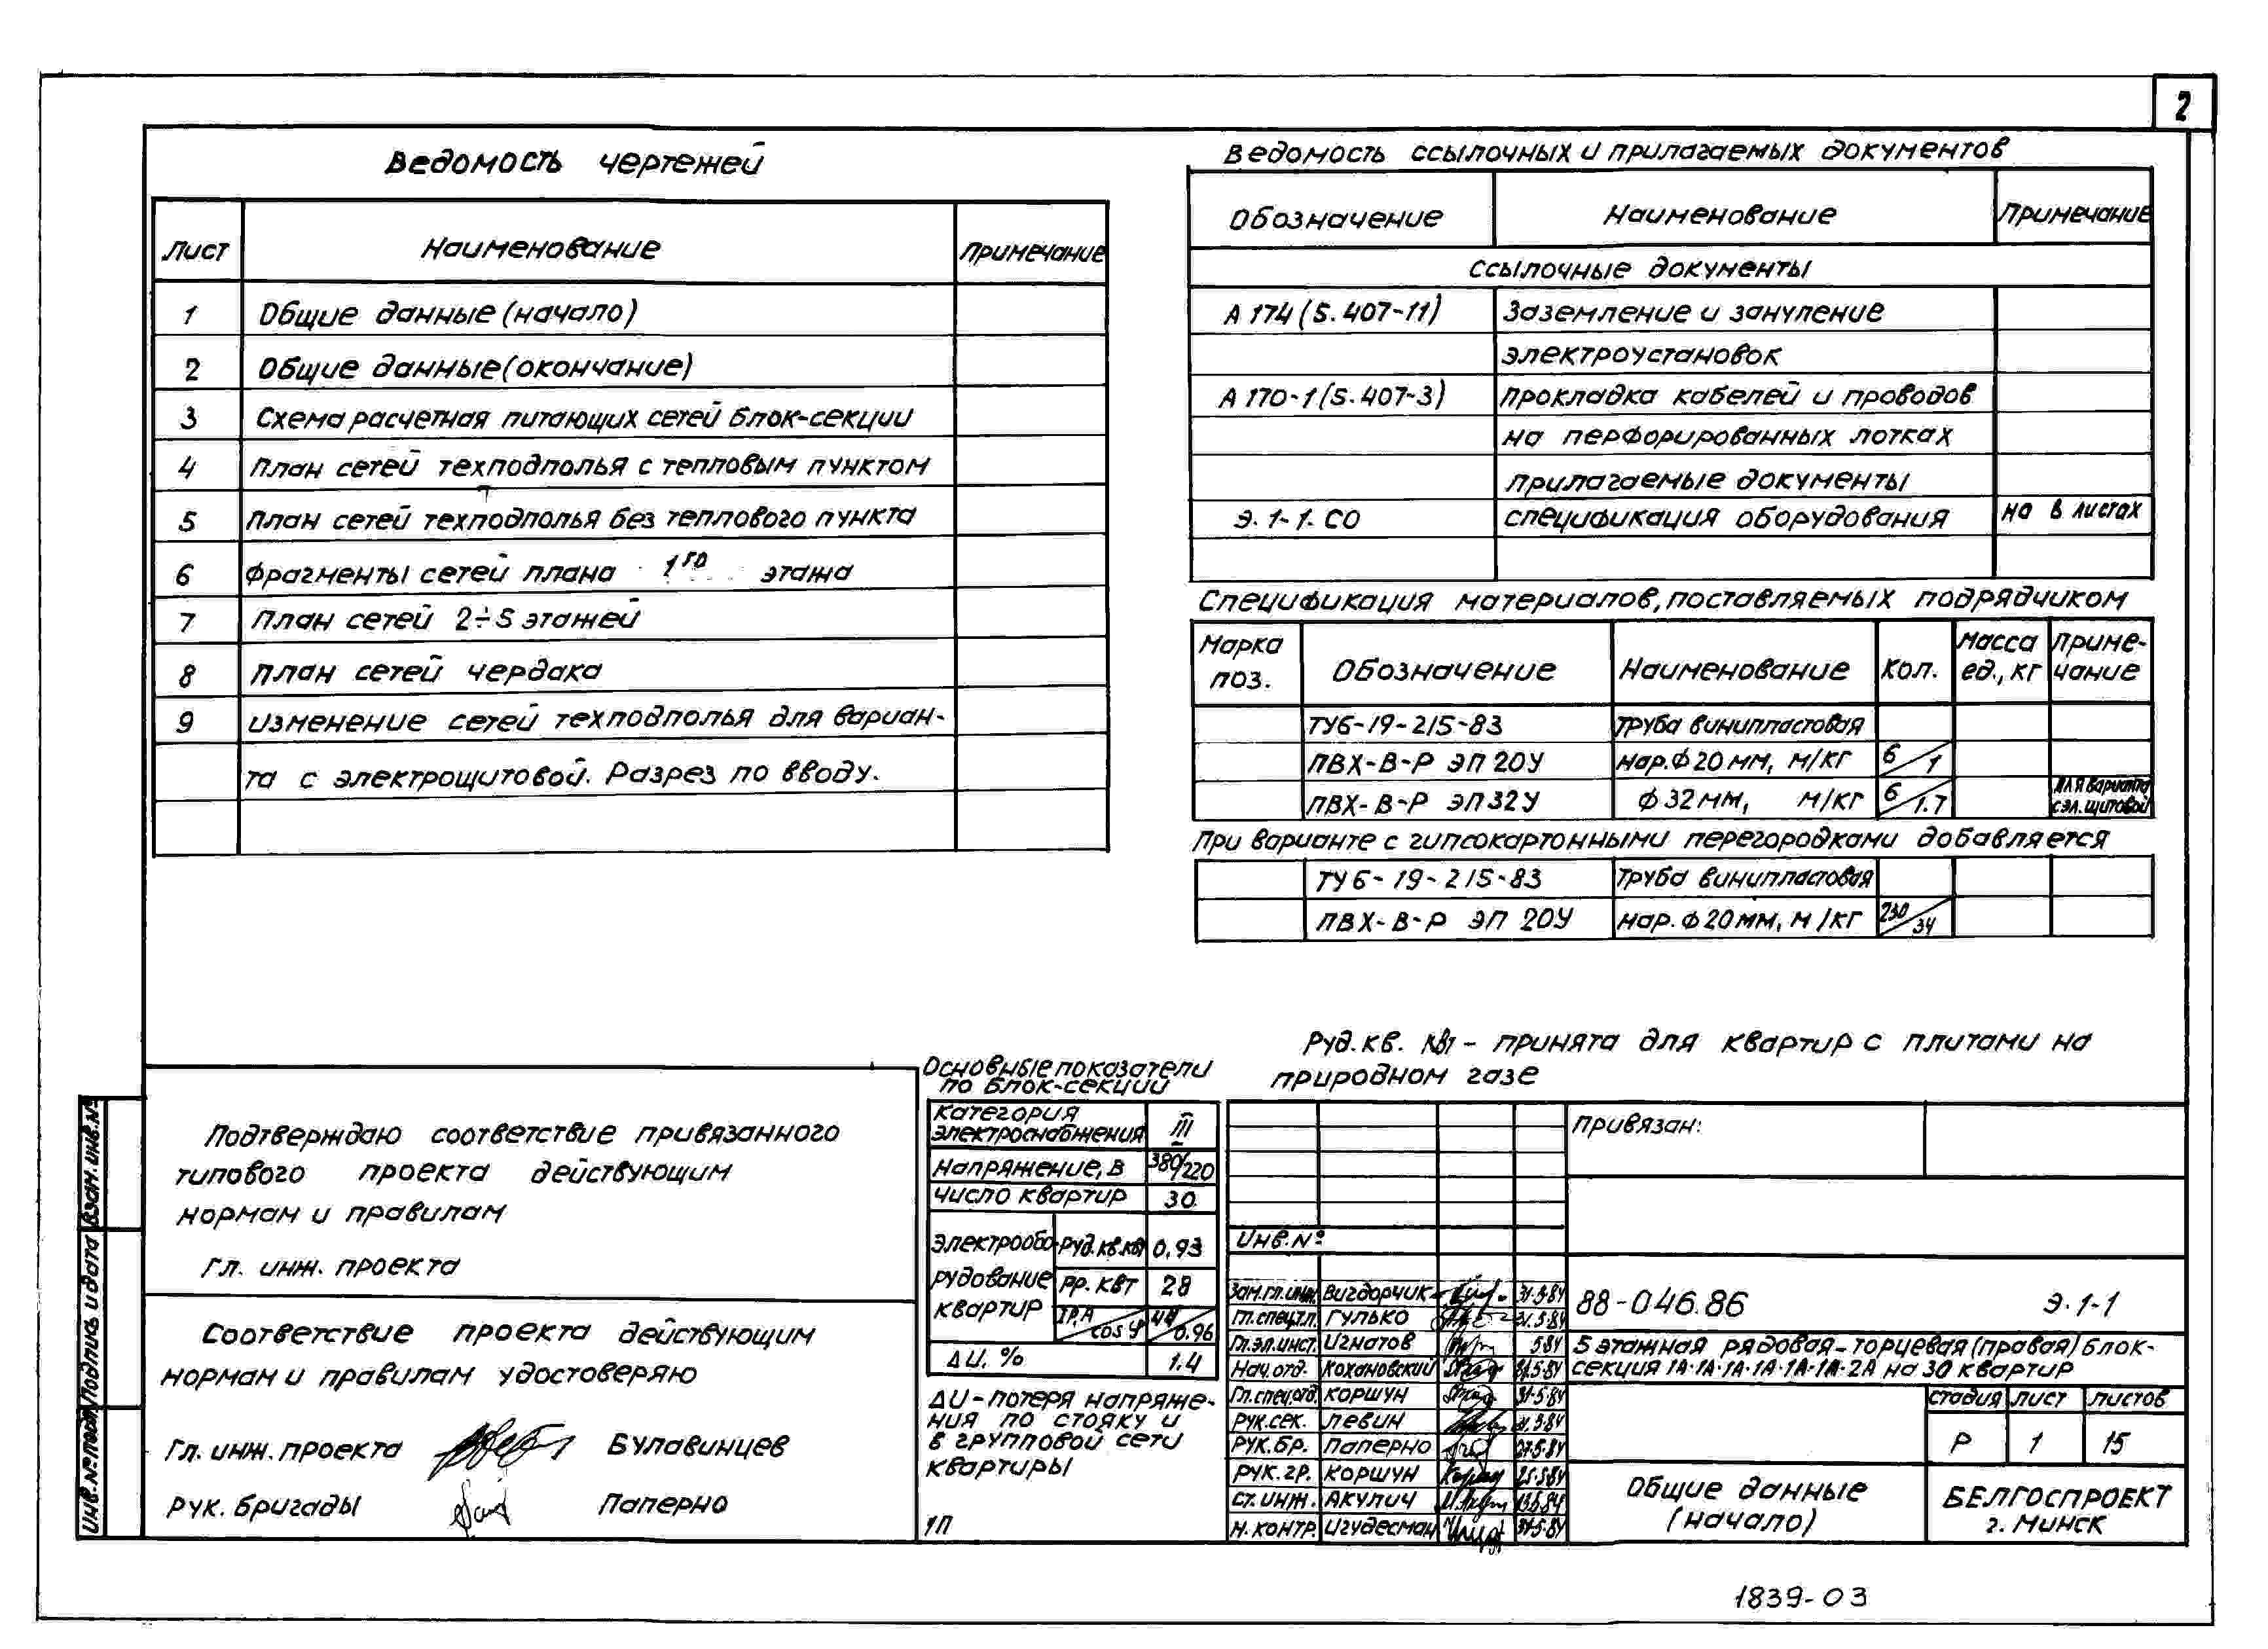 2
Ведомость чертежей
Лист Наименование Примечание
1 Общие данные (начало)
2 Общие данные (окончание)
3 Схема расчетная питающих сетей блок-секции
4 План сетей техподполья с тепловым пунктом
5 План сетей техподполья без теплового пункта
6 Фрагменты сетей плана 1го этажа
7 План сетей 2÷5 этажей
8 План сетей чердака
9 Изменение сетей техподполья для вариан-
та с электрощитовой. Разрез по вводу.
Ведомость ссылочных и прилагаемых документов
Обозначение Наименование Примечание
Ссылочные документы
А 174 (5.407-11) Заземление и зануление
электроустановок
А 170-1 (5.407-3) Прокладка кабелей и проводов
на перфорированных лотках
Прилагаемые документы
Э.1-1.СО Спецификация оборудования на 8 листах
Спецификация материалов, поставляемых подрядчиком
Марка поз. Обозначение Наименование Кол. Масса ед., кг Приме-чание
ТУ6-19-215-83 Труба винипластовая
ПВХ-В-Р ЭП 20У нар. ф 20 мм, м/кг 6/1
ПВХ-В-Р ЭП 32У ф 32 мм, м/кг 6/1.7 для варианта с эл. щитовой
При варианте с гипсокартонными перегородками добавляется
ТУ 6-19-215-83 Труба винипластовая
ПВХ-В-Р ЭП 20У нар. ф 20 мм, м/кг 230/34
Руд.кв. кВт - принята для квартир с плитами на
природном газе
Подтверждаю соответствие привязанного
типового проекта действующим
нормам и правилам
Гл. инж. проекта
Соответствие проекта действующим
нормам и правилам удостоверяю
Гл. инж. проекта Булавинцев
Рук. бригады Паперно
Основные показатели
по блок-секции
Категория электроснабжения III
Напряжение, В 380/220
Число квартир 30
Электрообо-рудование квартир Руд.кв.кВт 0,93
Рр. кВт 28
Iр.А/cos φ 44/0.96
ΔU. % 1.4
ΔU - потеря напряже-
ния по стояку и
в групповой сети
квартиры
1П
Привязан:
Инв. №
Зам.гл.инж. Вигдорчик 31.5.84
Гл.спец.тл. Гулько 31.5.84
Гл.эл.инст. Игнатов 5.84
Нач.отд. Кохановский 31.5.84
Гл.спец.отд. Коршун 31.5.84
Рук.сек. Левин 31.5.84
Рук.бр. Паперно 27.5.84
Рук.гр. Коршун 25.5.84
Ст.инж. Акулич
Н.контр. Игудесман 31.5.84
88-046.86 Э.1-1
5 этажная рядовая-торцевая (правая) блок-
секция 1А-1А-1А-1А-1А-1А-2А на 30 квартир
Стадия Лист Листов
Р 1 15
Общие данные
(начало)
БЕЛГОСПРОЕКТ
г. Минск
Инв.№ подл. Подпись и дата Взам.инв.№
1839-03